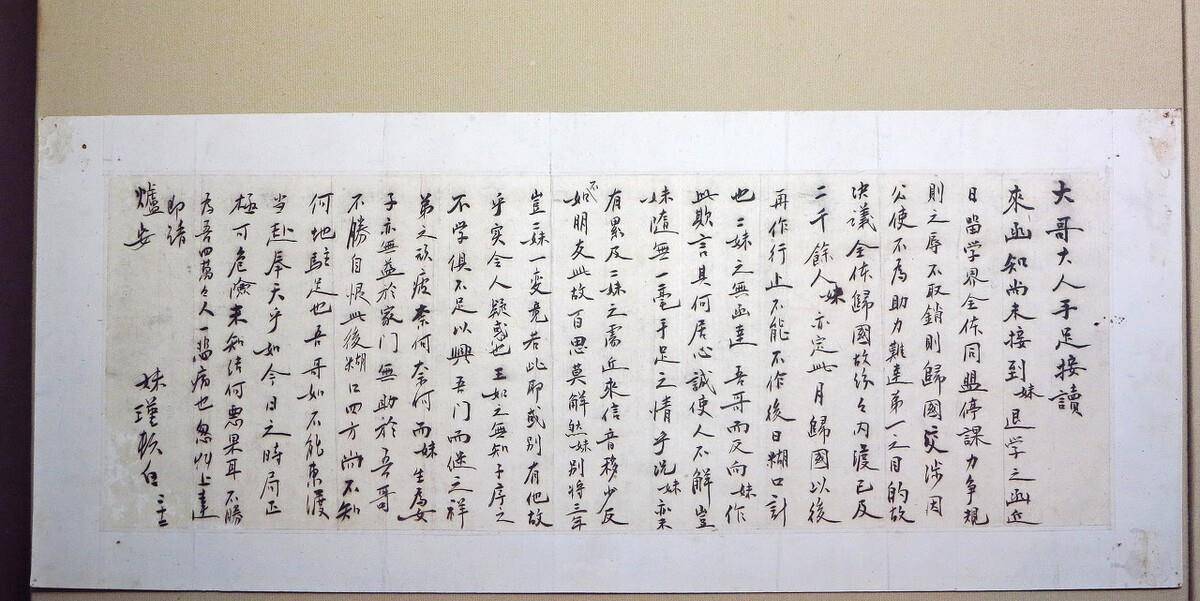 大哥大人手足接讀
來函知尚未接到妹退学之函近
日留学界全体同盟停課力争規
則之辱不取銷則歸國交涉因
公使不為助力難達第一之目的故
決議全体歸國故紛々內渡已及
二千餘人妹亦定此月歸國以後
再作行止不能不作後日糊口計
也二妹之無函達吾哥而反向妹作
此欺言其何居心誠使人不解豈
妹隨無一毫手足之情乎況妹亦未
有累及二妹之需近來信音移少反
不如朋友此故百思莫解然妹別將三年
豈二妹一變竟若此耶或別有他故
乎实令人疑惑也王如之無知子序之
不学俱不足以興吾门而使之祥
弟之頑疲奈何奈何而妹生為女
子亦無益於家门無助於吾哥
不勝自恨此後糊口四方尚不知
何地駐足也吾哥如不能東渡
当赴奉天乎如今日之時局正
極可危險未知结何惡果耳不勝
為吾四萬々人一悲痛也忽此上達
即請
爐安
妹瑾拜白